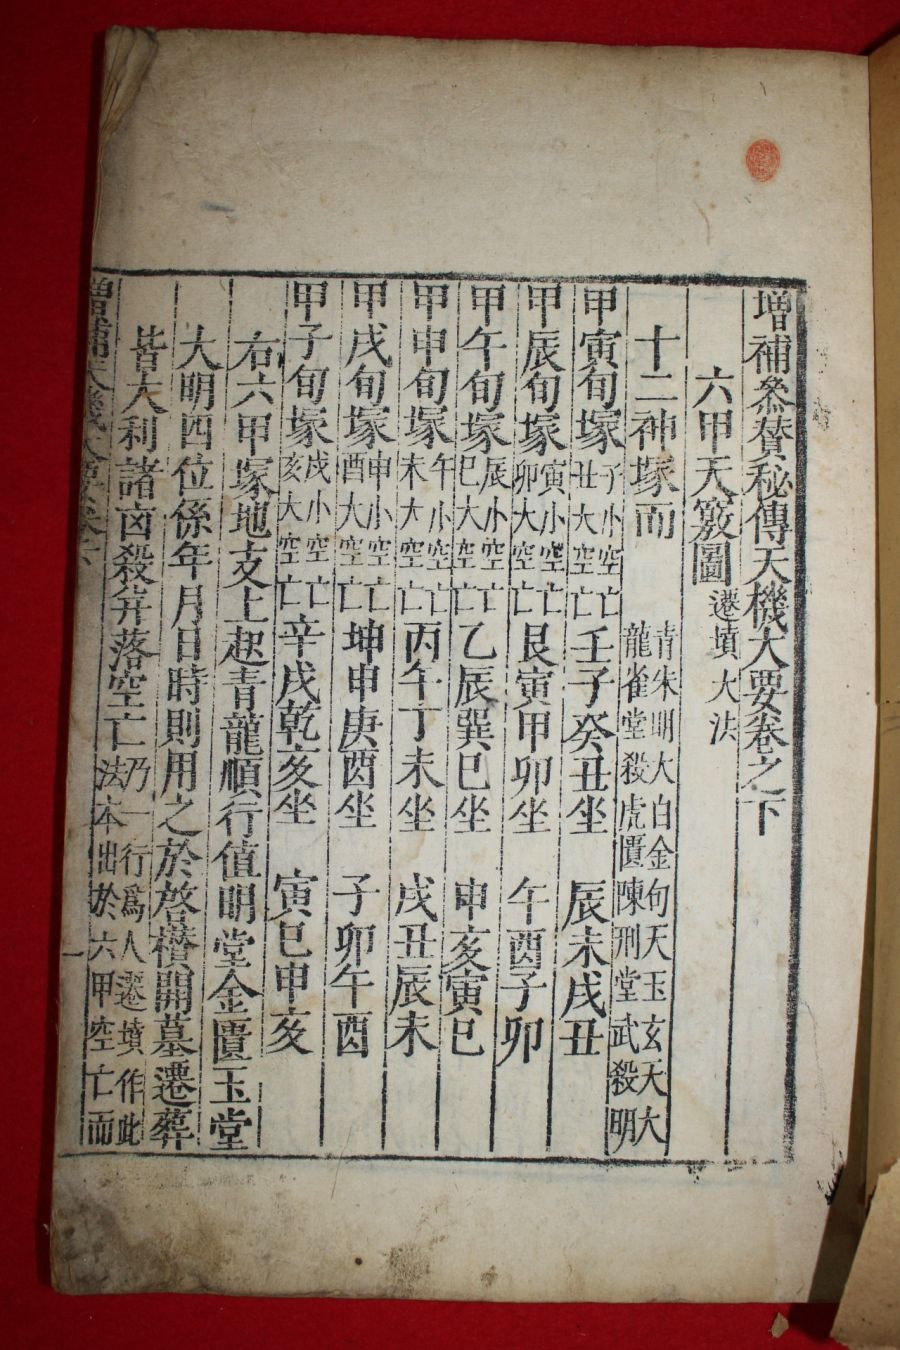 增補叅贊秘傳天機大要卷之下
六甲天竅圖 遷墳大法
十二神塚而 青朱明大白金句天玉玄天大 龍雀堂殺虎匱陳刑堂武殺明
甲寅旬塚 子小空亡 丑大空亡 壬子癸丑坐 辰未戌丑
甲辰旬塚 寅小空亡 卯大空亡 艮寅甲卯坐 午酉子卯
甲午旬塚 辰小空亡 巳大空亡 乙辰巽巳坐 申亥寅巳
甲申旬塚 午小空亡 未大空亡 丙午丁未坐 戌丑辰未
甲戌旬塚 申小空亡 酉大空亡 坤申庚酉坐 子卯午酉
甲子旬塚 戌小空亡 亥大空亡 辛戌乾亥坐 寅巳申亥
右六甲塚地支上起青龍順行值明堂金匱玉堂
大明四位係年月日時則用之於啓欑開墓遷葬
皆大利諸凶殺并落空亡 乃一行爲人遷墳作此 法本出於六甲空亡而
增補天機大要卷 一